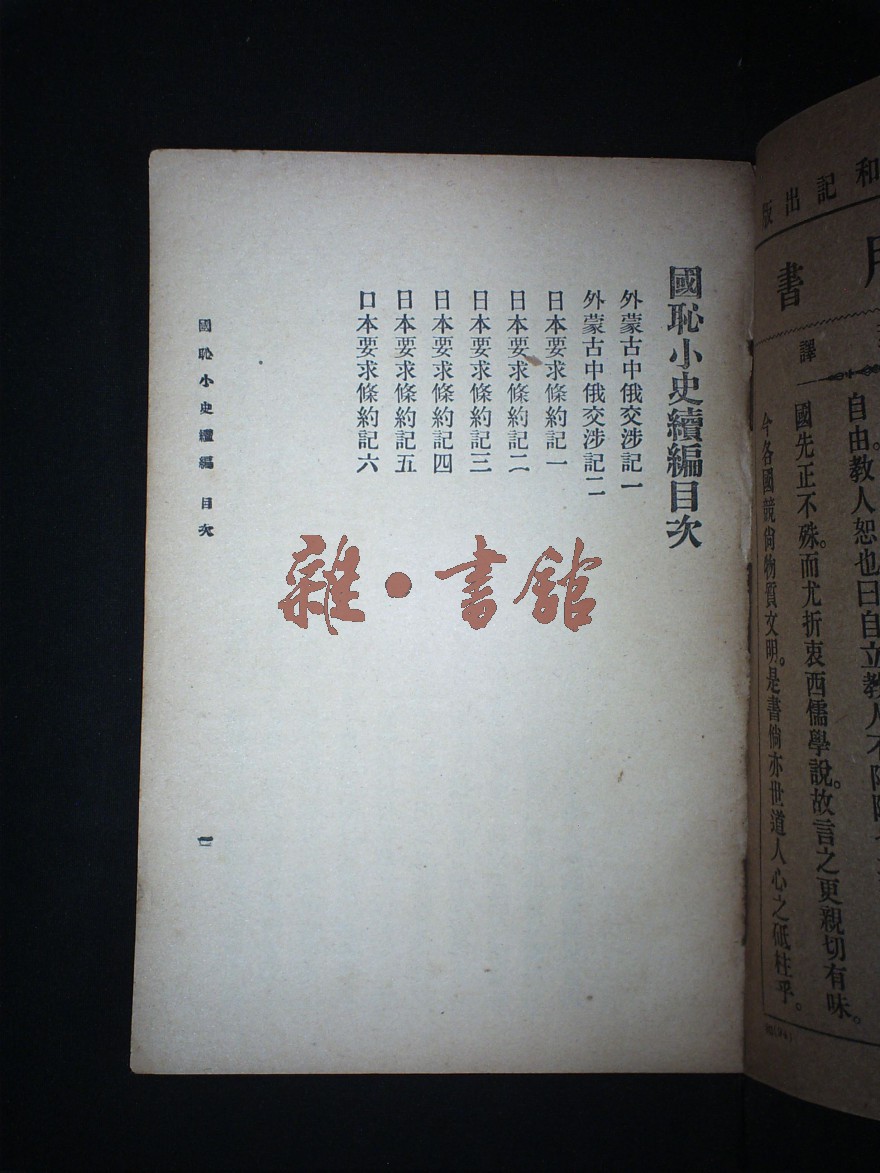 國恥小史續編目次
外蒙古中俄交涉記一
外蒙古中俄交涉記二
日本要求條約記一
日本要求條約記二
日本要求條約記三
日本要求條約記四
日本要求條約記五
日本要求條約記六
國恥小史續編 目次
一
雜·書館
和記出版
用書
譯
自由教人恕也曰自立教人不
國先正不殊。而尤折衷西儒學說。故言之更親切有味。
今各國競尙物質文明。是書倘亦世道人心之砥柱乎。